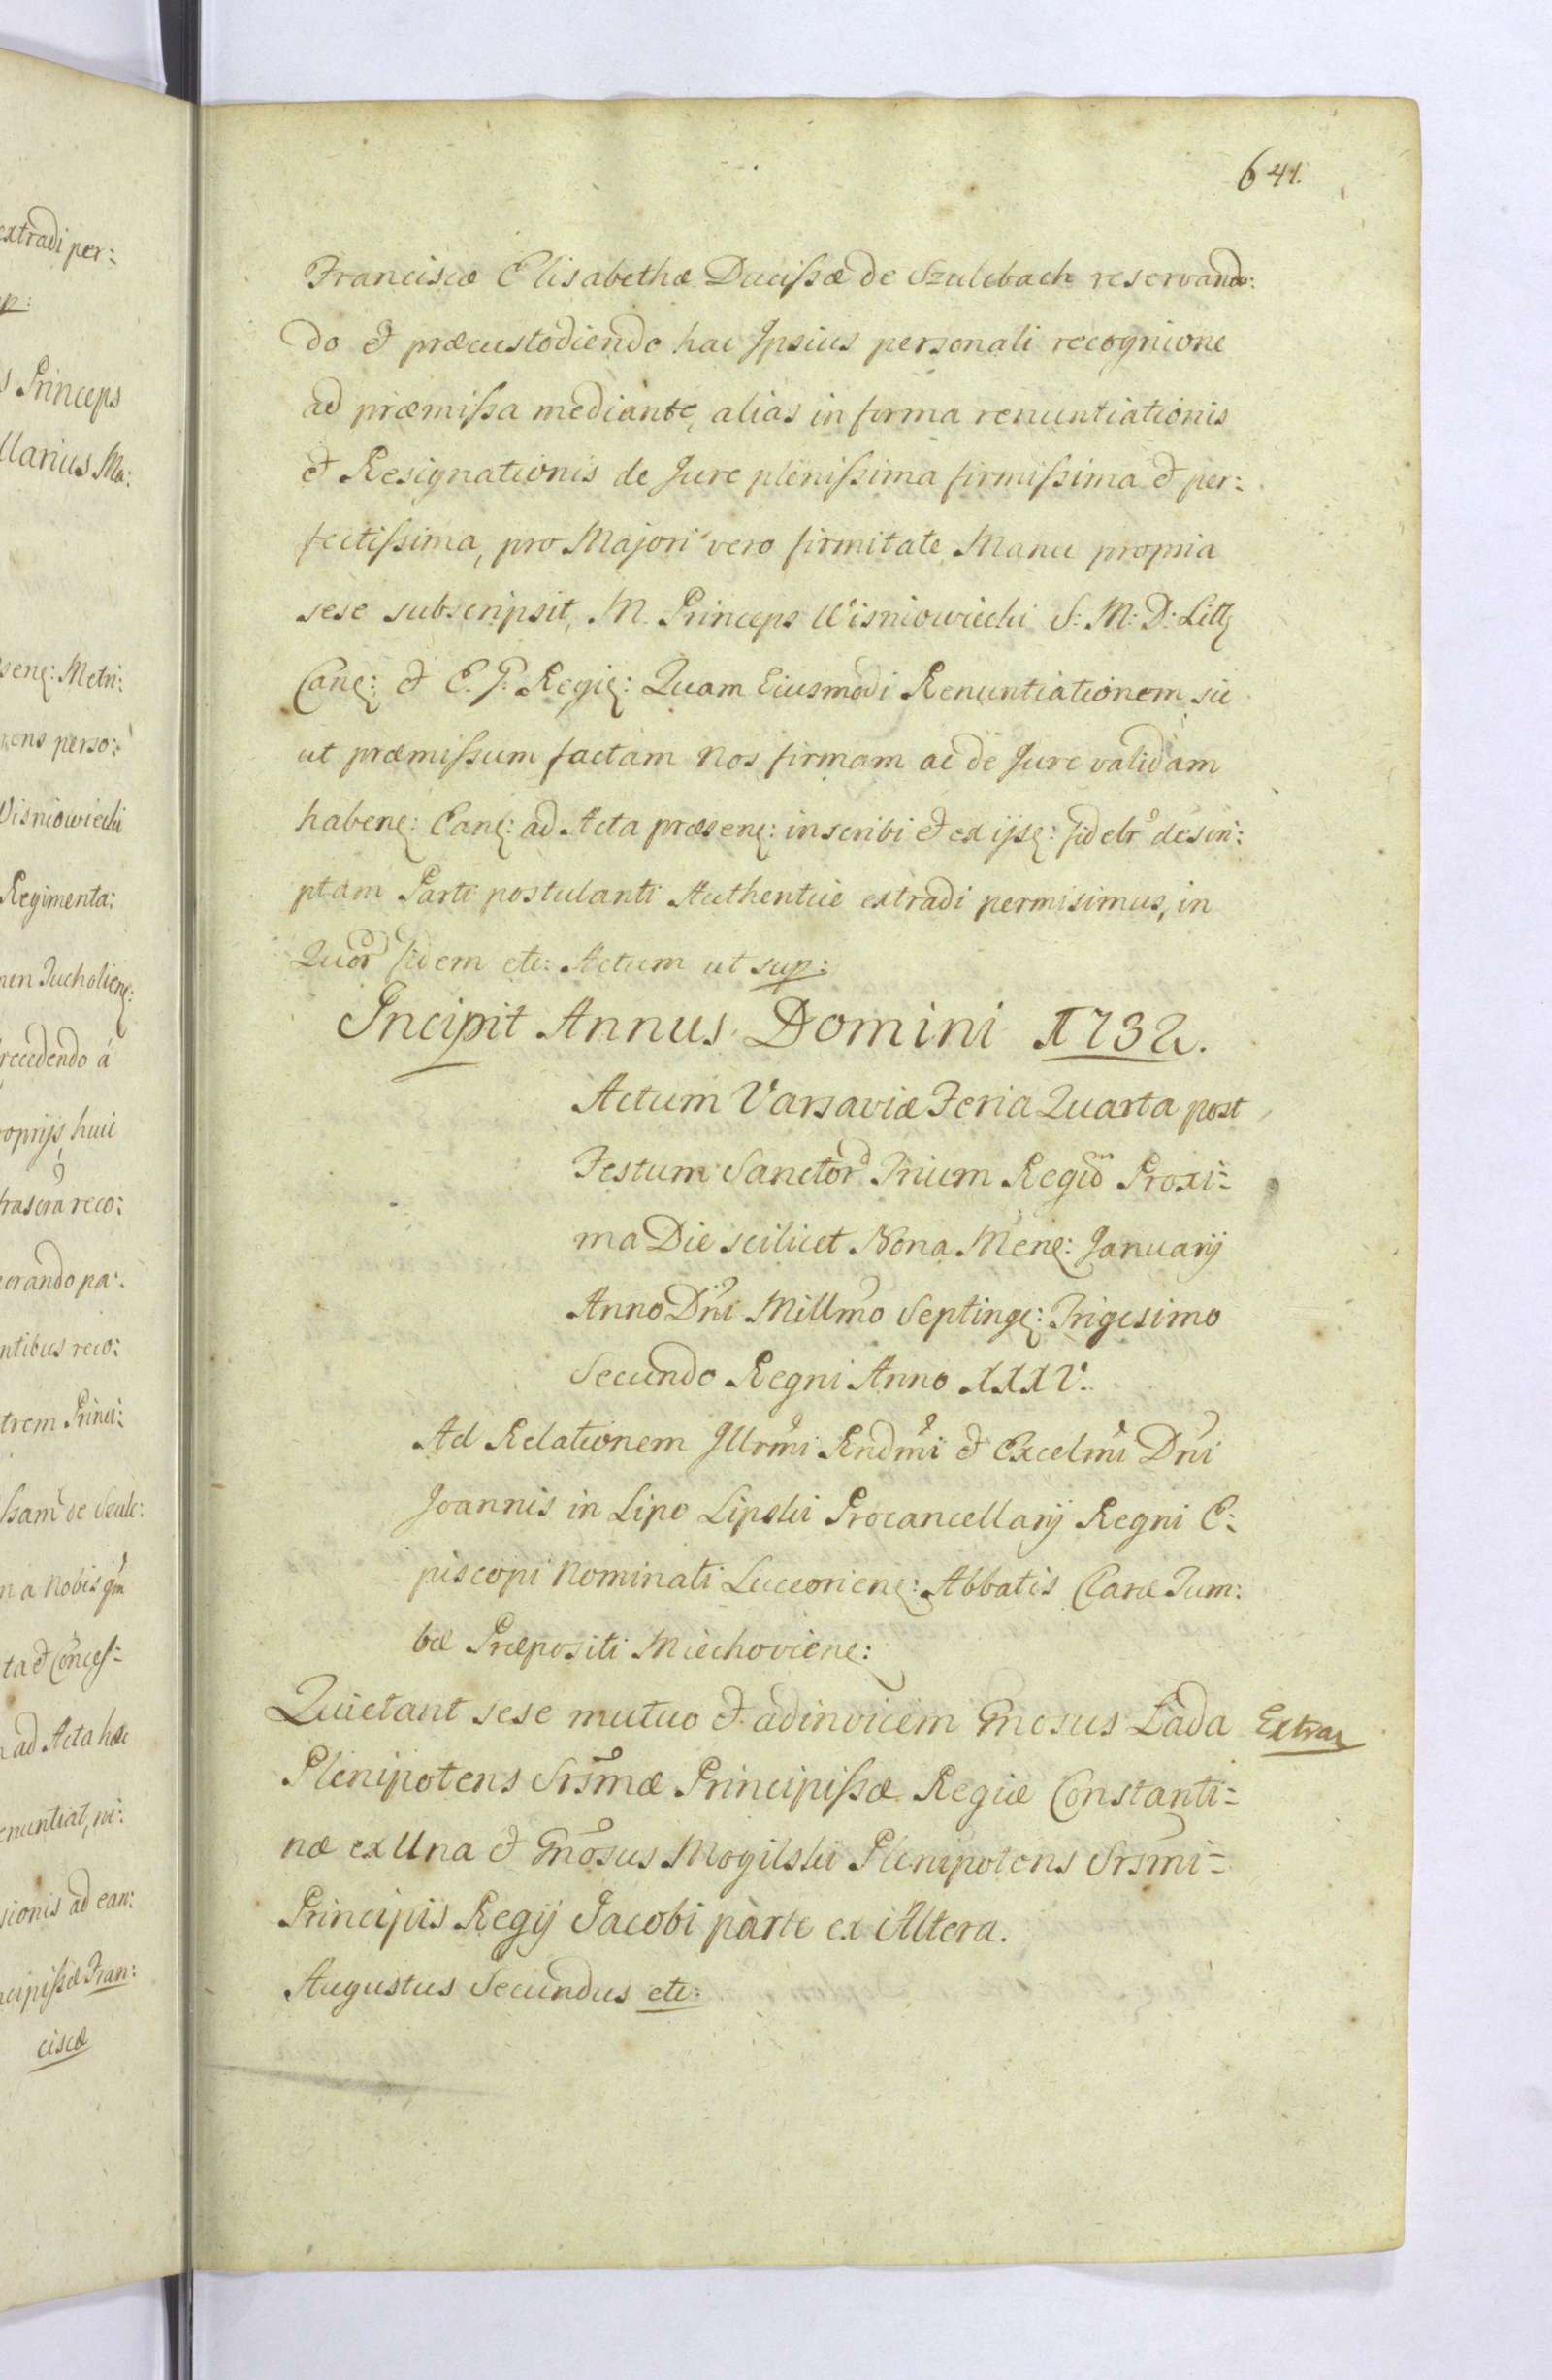 extradi per:
p:
s Princeps
llarius Ma:
senς: Metri:
rens perso:
Visniowiecki
Regimenta:
men Tucholienς:
recedendo á
roprijs, huic
frascrã reco:
orando pa:
ntibus reco:
trem Princi:
ssam de Seulc:
n a Nobis qm̃
ta & Conces=
n ad Acta hæc
enuntiat, ni:
sionis ad ean:
ncipissæ Fran:
ciscæ
641.
Franciscæ Elisabethæ Ducissæ de Szulcbach reservan:
do & præcustodiendo hac Ipsius personali recognicione
ad præmissa mediante, alias in forma renuntiationis
& Resignationis de Jure plenissima firmissima & per:
fectissima, pro Majori vero firmitate Manu propria
sese subscripsit, M. Princeps Wisniowiecki S: M: D: Littς
Canς: & E. P. Regiς: Quam Eiusmodi Renuntiationem sic
ut præmissum factam Nos firmam ac de Jure validam
habenς: Eanς: ad Acta præsenς: inscribi & ex ijsς: fidelr̃ descri:
ptam Parti postulanti Authentice extradi permisimus, in
Quor̃ fidem etc: Actum ut sup:
Incipit Annus Domini 1732.
Actum Varsaviæ Feria Quarta post
Festum Sanctor̃ Trium Regũm Proxi=
ma Die scilicet Nona Menς: Januarij
Anno Dñi Millm̃o Septingς: Trigesimo
Secundo Regni Anno XXXV.
Ad Relationem Illrm̃i Rndm̃i & Excelm̃i Dñi
Joannis in Lipe Lipski Procancellarij Regni E:
piscopi Nominati Luceorienς: Abbatis Claræ Tum:
bæ Præpositi Miechovienς:
Quietant sese mutuo & adinvicem Gnosus Łada Extrar
Plenipotens Srsm̃æ Principissæ Regiæ Constanti=
næ ex Una & Gñosus Mogilski Plenipotens Srsm̃i=
Principis Regij Jacobi parte ex Altera.
Augustus Secundus etc: